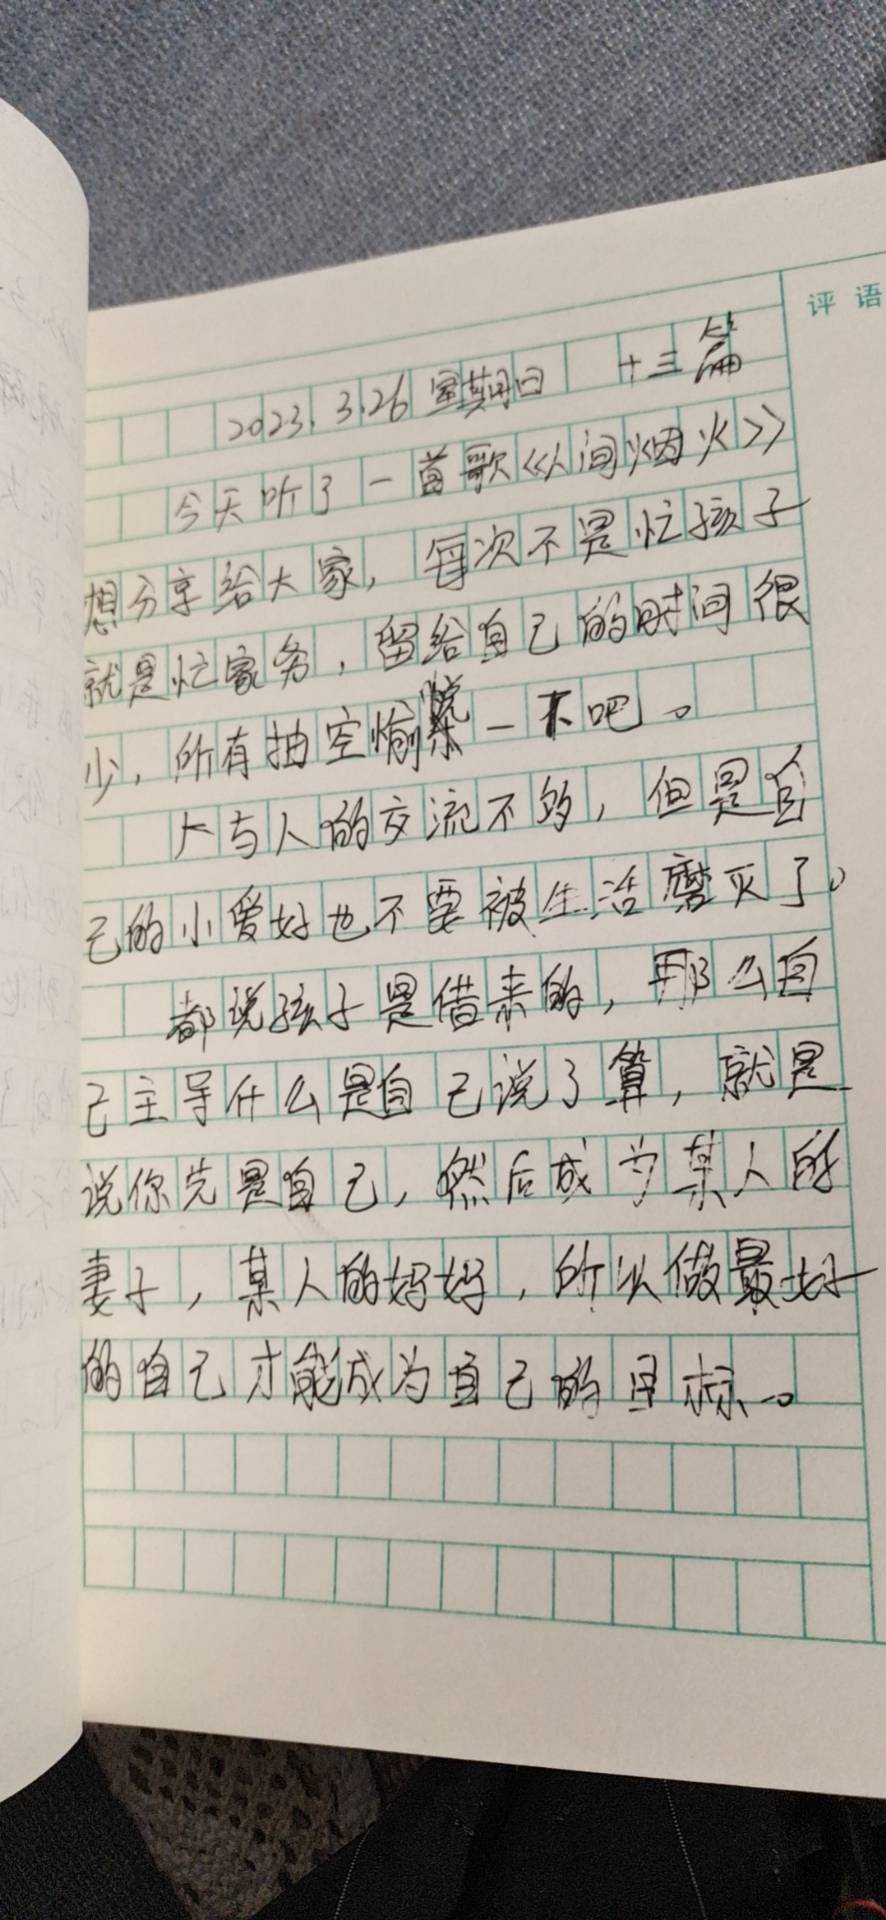 评语
2023.3.26 星期日 十三篇
今天听了一首歌《人间烟火》
想分享给大家，每次不是忙孩子
就是忙家务，留给自己的时间很
少，所有抽空愉悦一下吧。
人与人的交流不够，但是自
己的小爱好也不要被生活磨灭了。
都说孩子是借来的，那么自
己主导什么是自己说了算，就是
说你先是自己，然后成为某人的
妻子，某人的妈妈，所以做最好
的自己才能成为自己的目标。